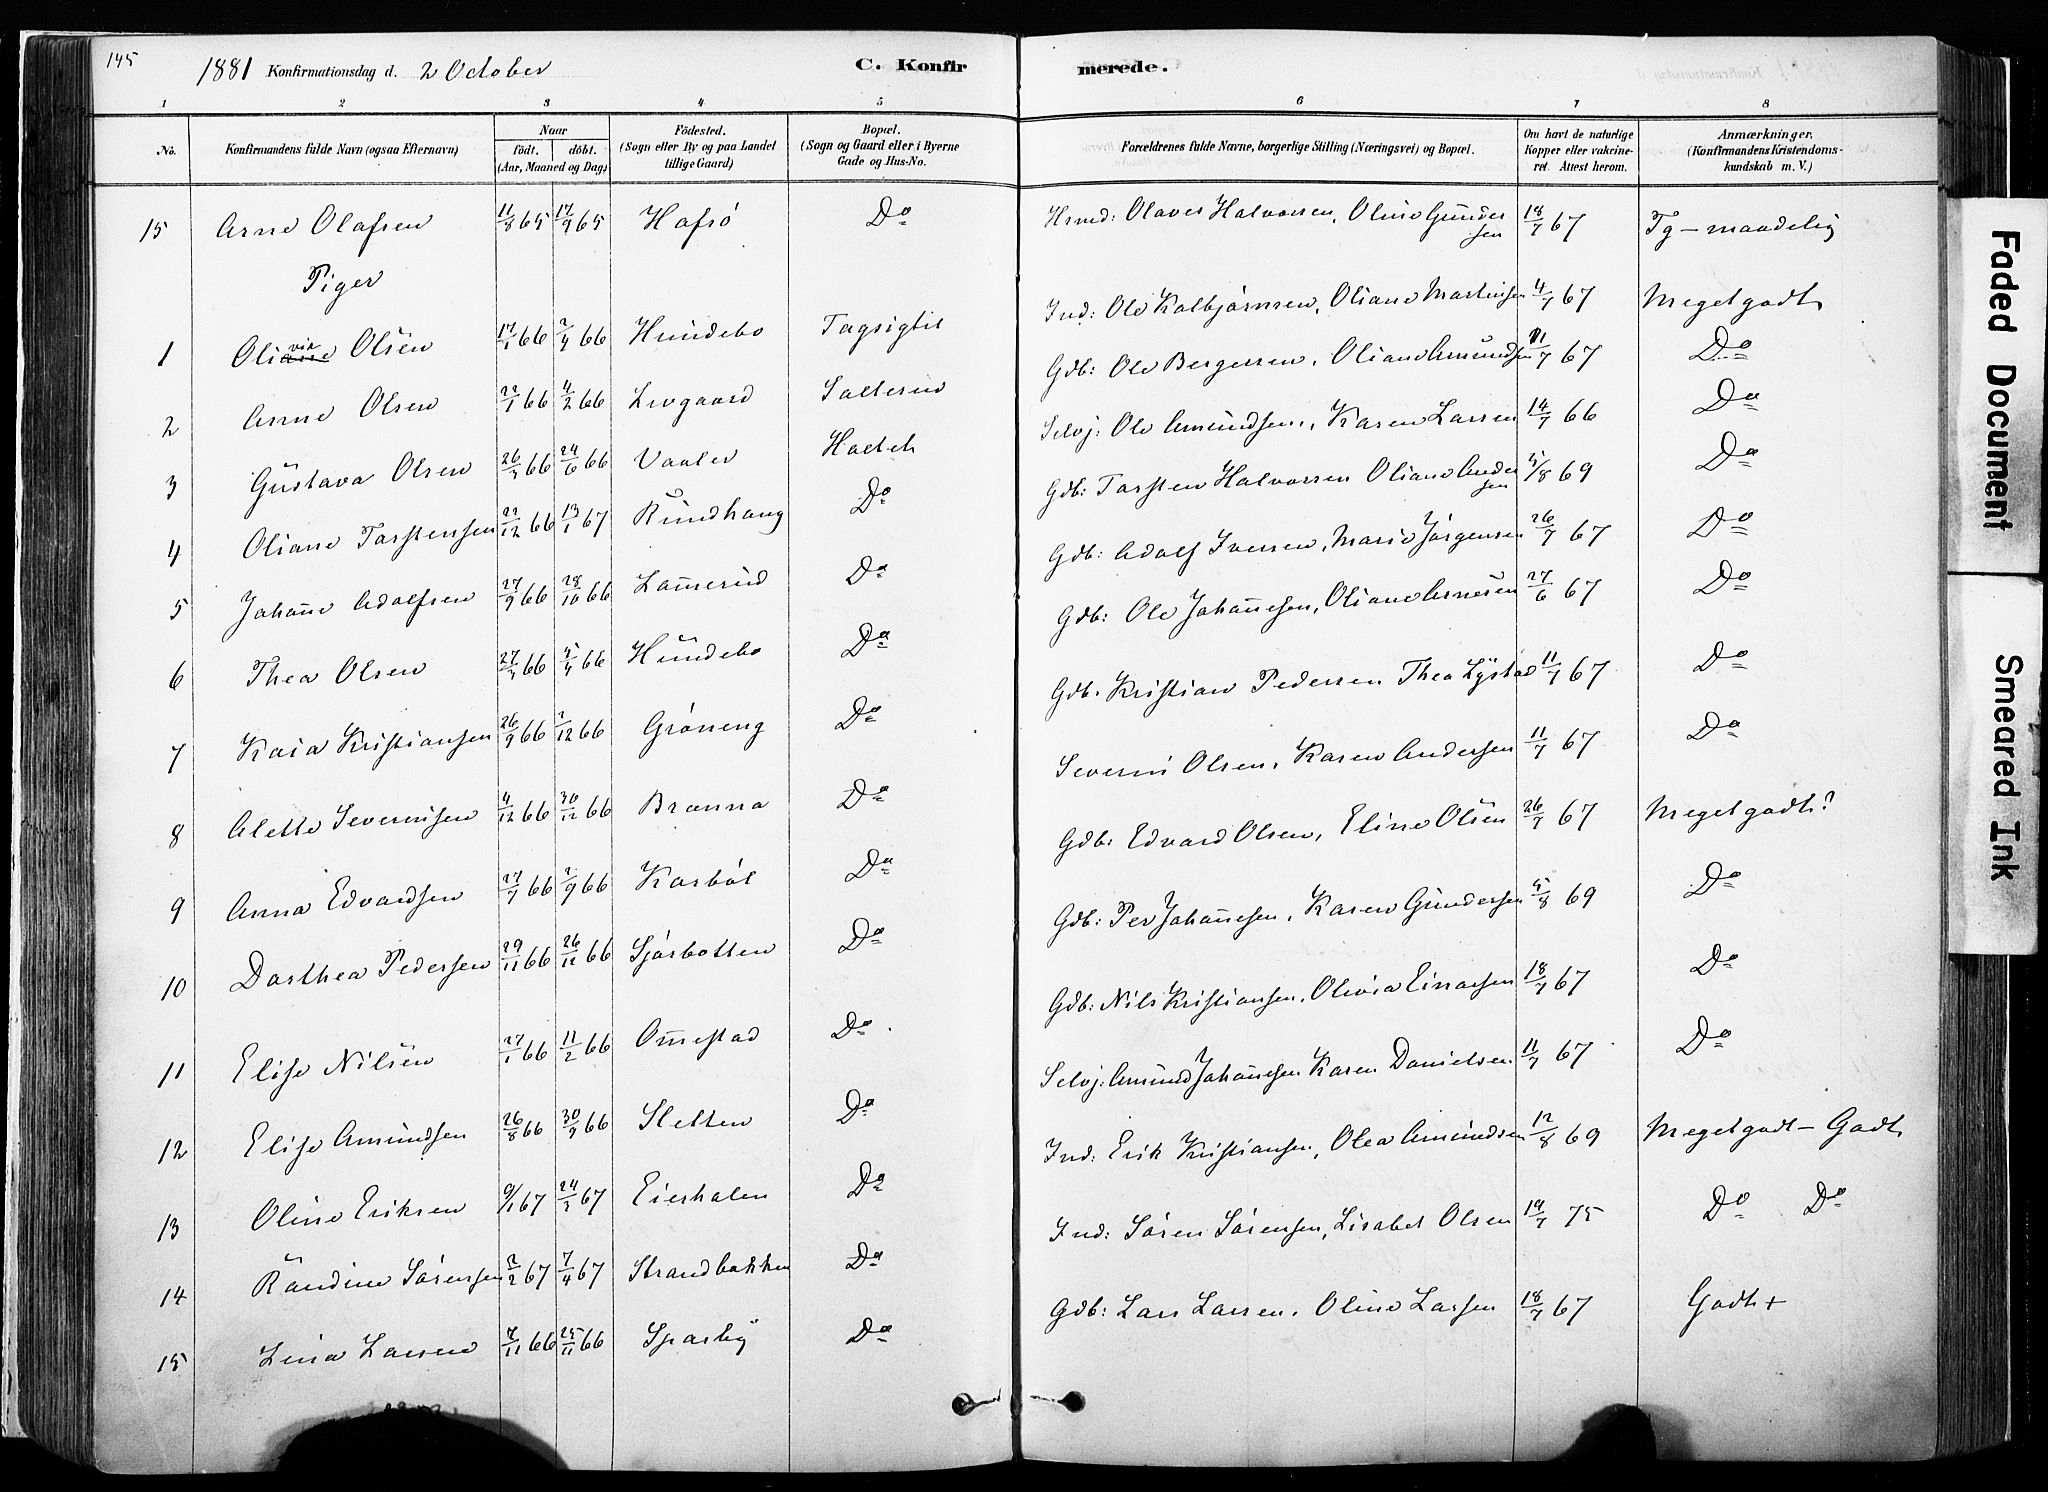 145
1881 Konfirmationsdag d. 2 October
C. Konfirmerede.
1 2 3 4 5 6 7 8
No. | Konfirmandens fulde Navn (ogsaa Efternavn) | Naar födt. döbt. (Aar, Maaned og Dag) | Födested. (Sogn eller By og paa Landet tillige Gaard) | Bopæl. (Sogn og Gaard eller i Byerne Gade og Hus-No. | Forældrenes fulde Navne, borgerlige Stilling (Næringsvei) og Bopæl. | Om havt de naturlige Kopper eller vakcineret. Attest herom. | Anmærkninger. (Konfirmandens Kristendomskundskab m. V.)
15 Arne Olafsen 11/8 65 17/9 65 Hafsö Do Hsmd: Olaves Halvorsen, Oline Gundersen 18/7 67 Tg - maadelig
Piger
1 Oliane via Olsen 17/1 66 2/4 66 Hundebo Tagsigtil Ind: Ole Kolbjörnsen, Oliane Martinsen 4/7 67 Meget godt
2 Anne Olsen 22/1 66 4/2 66 Levgaard Solterud Gdb: Ole Bergersen, Oliane Amundsen 11/7 67 Do
3 Gustava Olsen 26/3 66 24/6 66 Vaaler Selvj: Ole Amundsen, Karen Larsen 14/7 66 Do
4 Oliane Torstensen 22/12 66 13/1 67 Rundhaug Do Gdb: Torsten Halvorsen Oliane Andersen 5/8 69 Do
5 Johanne Adolfsen 27/9 66 28/10 66 Lamerud Do Gdb: Adolf Iversen, Marie Jörgensen 26/7 67 Do
6 Thea Olsen 27/3 66 5/4 66 Hundebo Do Gdb: Ole Johannesen, Oliane Arnesen 27/6 67 Do
7 Kaia Kristiansen 26/9 66 2/12 66 Gröneng Do Gdb. Kristian Pedersen Thea Lystad 11/7 67 Do
8 Alette Severinsen 4/12 66 30/12 66 Branna Do Severin Olsen, Karen Andersen 11/7 67 Do
9 Anna Edvardsen 27/7 66 2/9 66 Korböl Do Gdb: Edvard Olsen, Eline Olsen 26/7 67 Meget godt?
10 Dorthea Pedersen 29/11 66 26/12 66 Sjörbotten Do Gdb: Per Johannesen, Karen Gundersen 5/8 69 Do
11 Elise Nilsen 27/1 66 11/2 66 Ommestad Do Gdb: Nils Kristiansen, Olivia Einarsen 18/7 67 Do
12 Elise Amundsen 26/8 66 30/9 66 Sletten Do Selvj: Amund Johannesen Karen Danielsen 11/7 67 Do
13 Oline Eriksen 9/1 67 24/3 67 Eierholen Do Ind: Erik Kristiansen, Olea Amundsen 12/8 69 Meget godt - Godt
14 Randine Sörensen 2/2 67 7/4 67 Strandbakken Do Ind: Sören Sörensen, Lisabet Olsen 19/7 75 Do Do
15 Lina Larsen 7/11 66 25/11 66 Sparby Do Gdb: Lars Larsen, Oline Larsen 18/7 67 Godt +
Faded Document
Smeared Ink